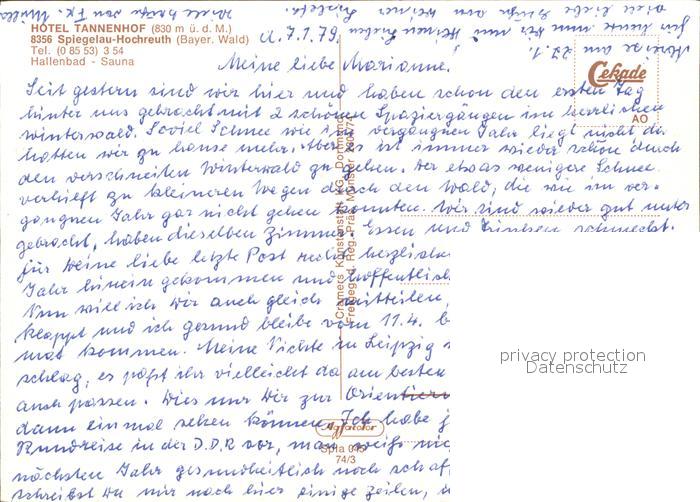 HOTEL TANNENHOF (830 m ü. d. M.)
8356 Spiegelau-Hochreuth (Bayer. Wald)
Tel. (0 85 53) 3 54
Hallenbad - Sauna
d. 7.1.79.
Meine liebe Marianne,
Seit gestern sind wir hier und haben schon den ersten Tag
hinter uns gebracht mit 2 schönen Spaziergängen im herrlichen
Winterwald. Soviel Schnee wie im vergangenen Jahr liegt nicht, da
hatten wir zu hause mehr. Aber es ist immer wieder schön durch
den verschneiten Winterwald zu gehen. Der etwas wenigere Schnee
verhilft zu kleineren Wegen durch den Wald, die wir im ver-
gangnen Jahr gar nicht gehen konnten. Wir sind wieder gut unter
gebracht, haben dieselben Zimmer. Essen und Trinken schmeckt.
für Deine liebe letzte Post recht herzlich
Jahr hinein gekommen und hoffentlich
Nun will ich Dir auch gleich mitteilen,
klappt und ich gesund bleibe vom 11.4. b
mal kommen. Meine Nichte in Leipzig
schlag, es paßt ihr vielleicht da am besten
auch passen. Dies nur Dir zur Orientieru
dann einmal sehen können. Ich habe j
Rundreise in der D.D.R vor, man weiß nic
nächsten Jahr gesundheitlich noch schaf
schreibst Du mir noch hier einige Zeilen,
Cekade
AO
Cramers Kunstanstalt KG, Dortmund
Spia 045
74/3
privacy protection
Datenschutz